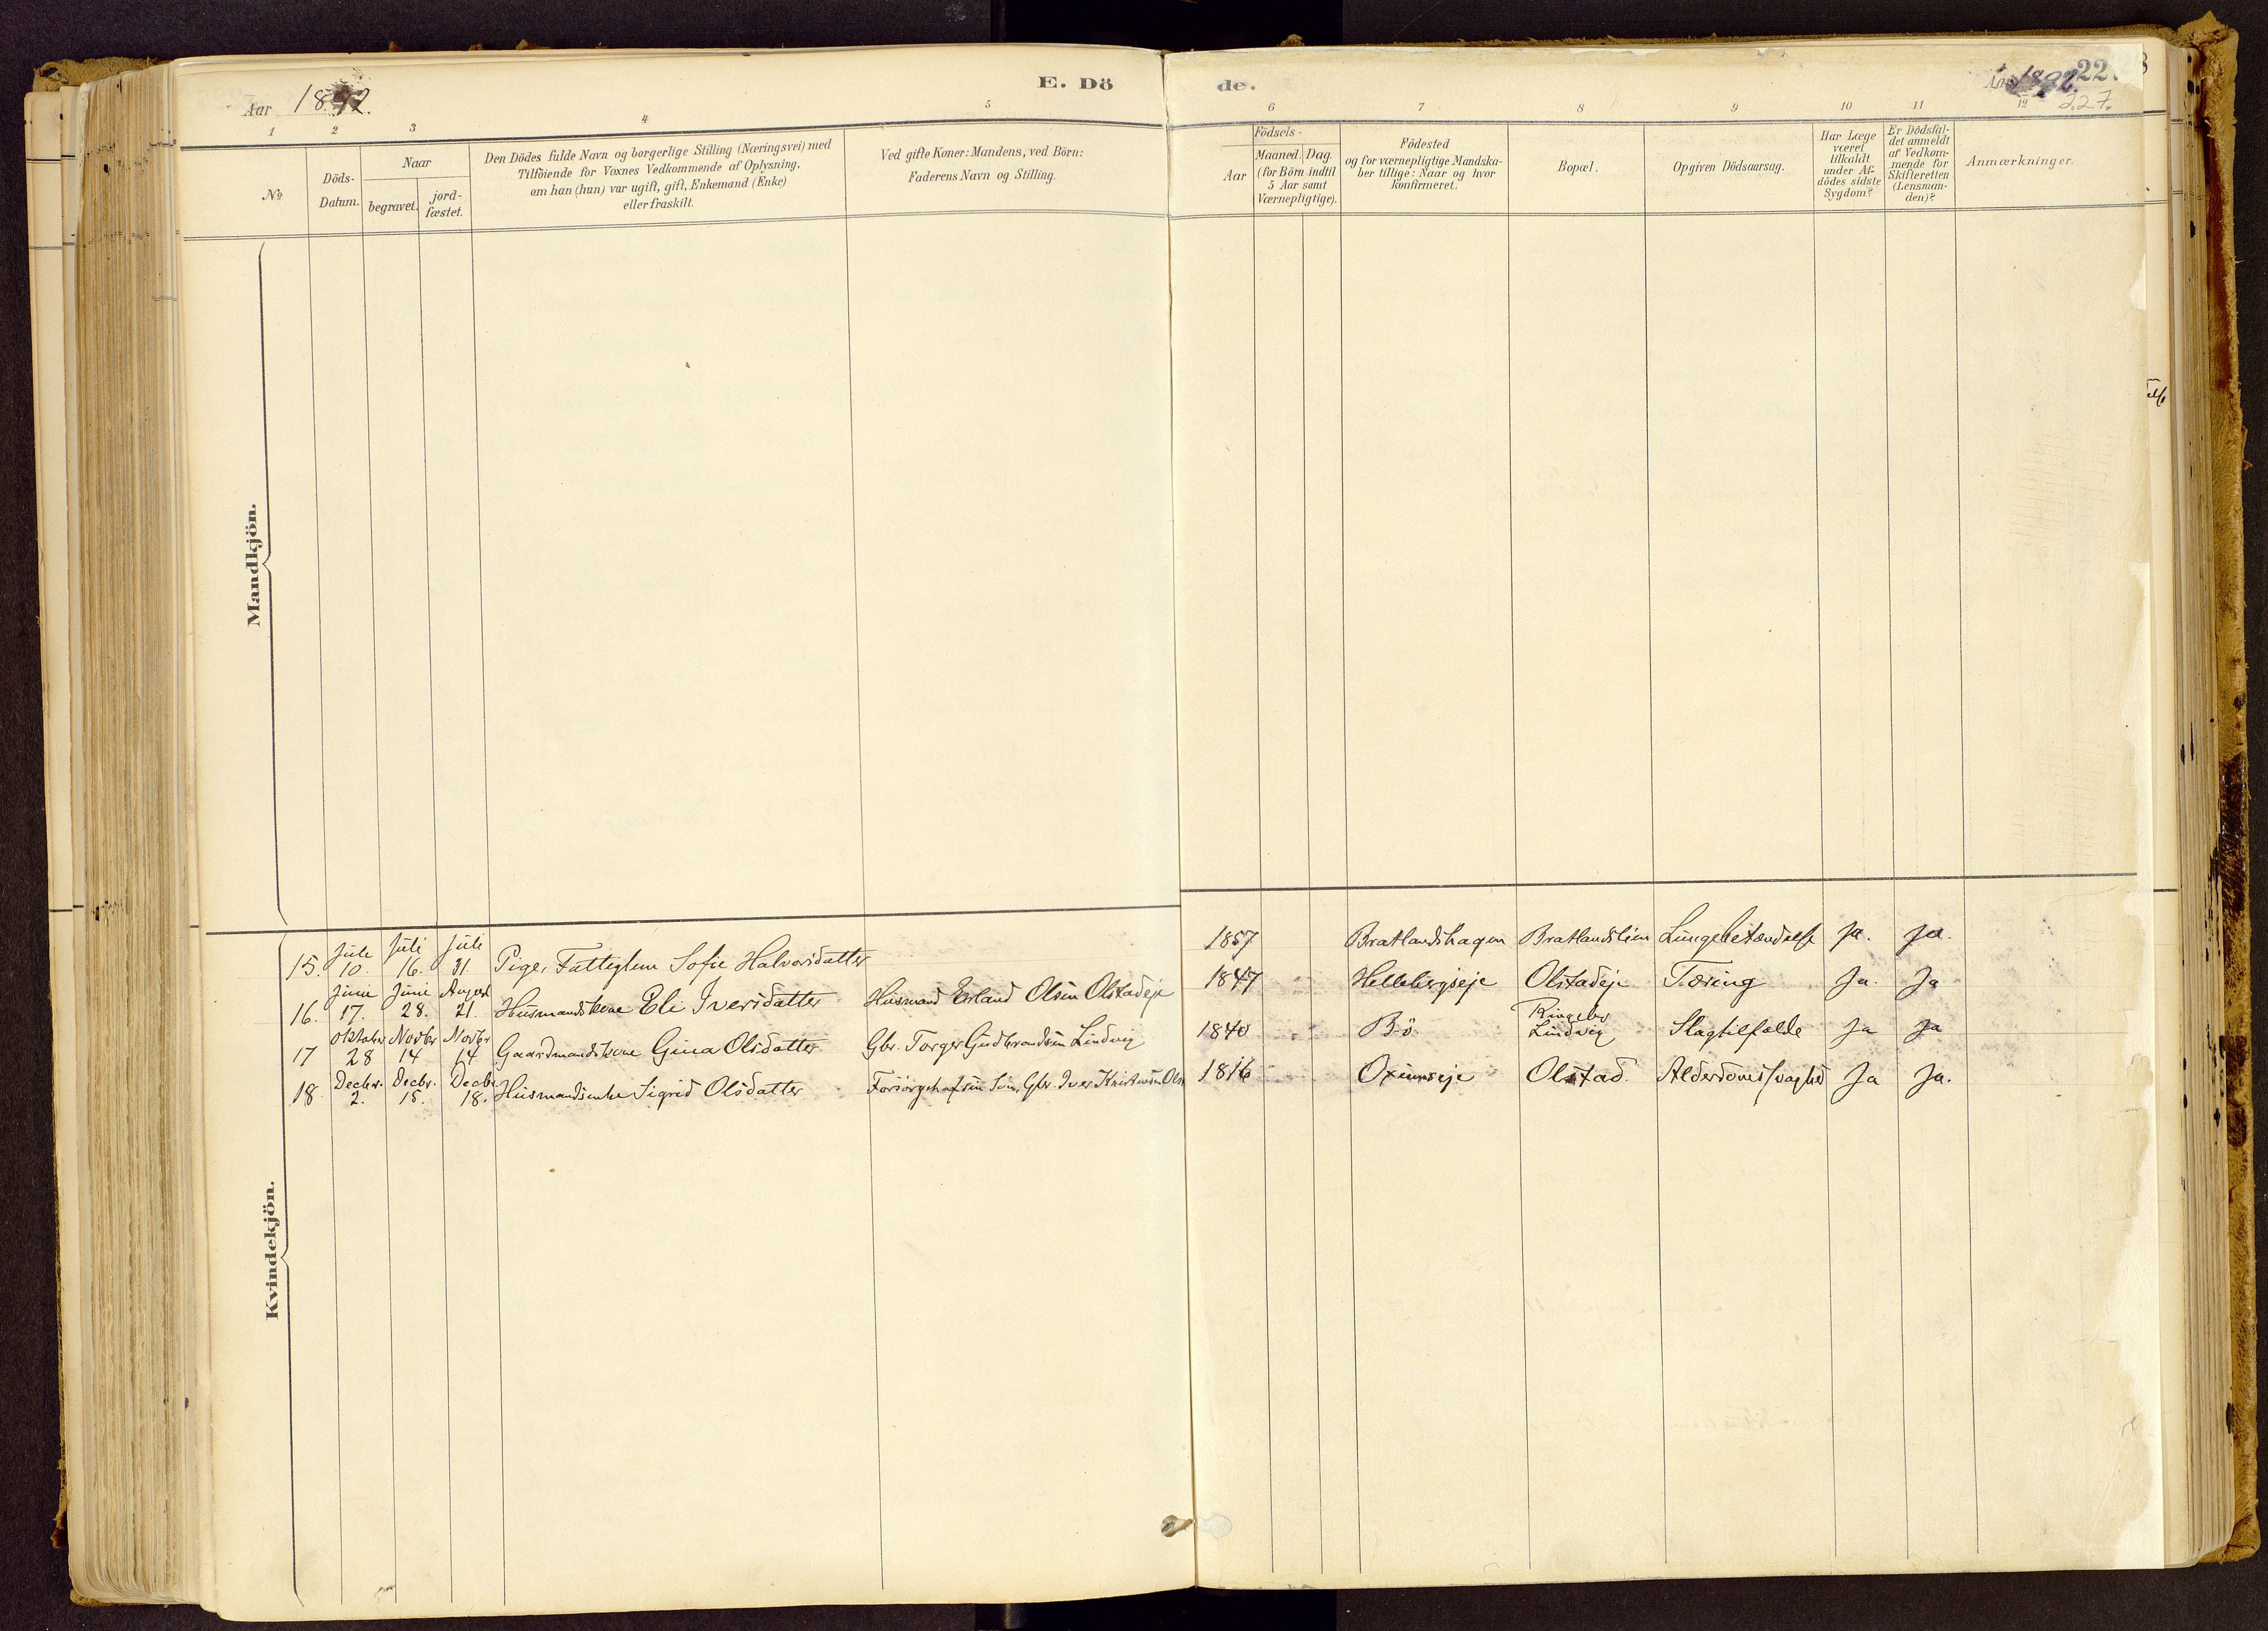 E. Dö
de.
Aar 1892.
Aar 1892.
227.
1 2 3 4 5 6 7 8 9 10 11 12
№
Döds-
Datum.
Naar
begravet.
jord-
fæstet.
Den Dödes fulde Navn og borgerlige Stilling (Næringsvei) med
Tilföiende for Voxnes Vedkommende af Oplysning,
om han (hun) var ugift, gift, Enkemand (Enke)
eller fraskilt.
Ved gifte Koner: Mandens, ved Börn:
Faderens Navn og Stilling.
Födsels-
Aar
Maaned. Dag.
(for Börn indtil
5 Aar samt
Værnepligtige).
Födested
og for værnepligtige Mandska-
ber tillige: Naar og hvor
konfirmeret.
Bopæl.
Opgiven Dödsaarsag.
Har Læge
været
tilkaldt
under Af-
dödes sidste
Sygdom?
Er Dödsfal-
det anmeldt
af Vedkom-
mende for
Skifteretten
(Lensman-
den)?
Anmærkninger.
Mandkjön.
Kvindekjön.
Juli Juli Juli
15. 10. 16. 31. Pige, Fattiglem Sofie Halvorsdatter 1857 Bratlandshagen Bratlandslien Lungebetændelse Ja. Ja.
Juni Juni August
16. 17. 28. 21. Husmandskone Eli Iversdatter Husmand Erland Olsen Olstadeje 1847 Hellebergseje Olstadeje Tæring Ja. Ja
Oktober Novbr Novbr Ringebu
17 28 14 14 Gaardmandskone Gina Olsdatter Gbr. Torger Gudbrandsen Lindvig 1840 Bö Lindvig Slagtilfælde Ja Ja
Decbr. Decbr. Decbr.
18. 2. 15. 18. Husmandsenke Sigrid Olsdatter Gbr. Iver 1816 Olstad. Ja Ja.